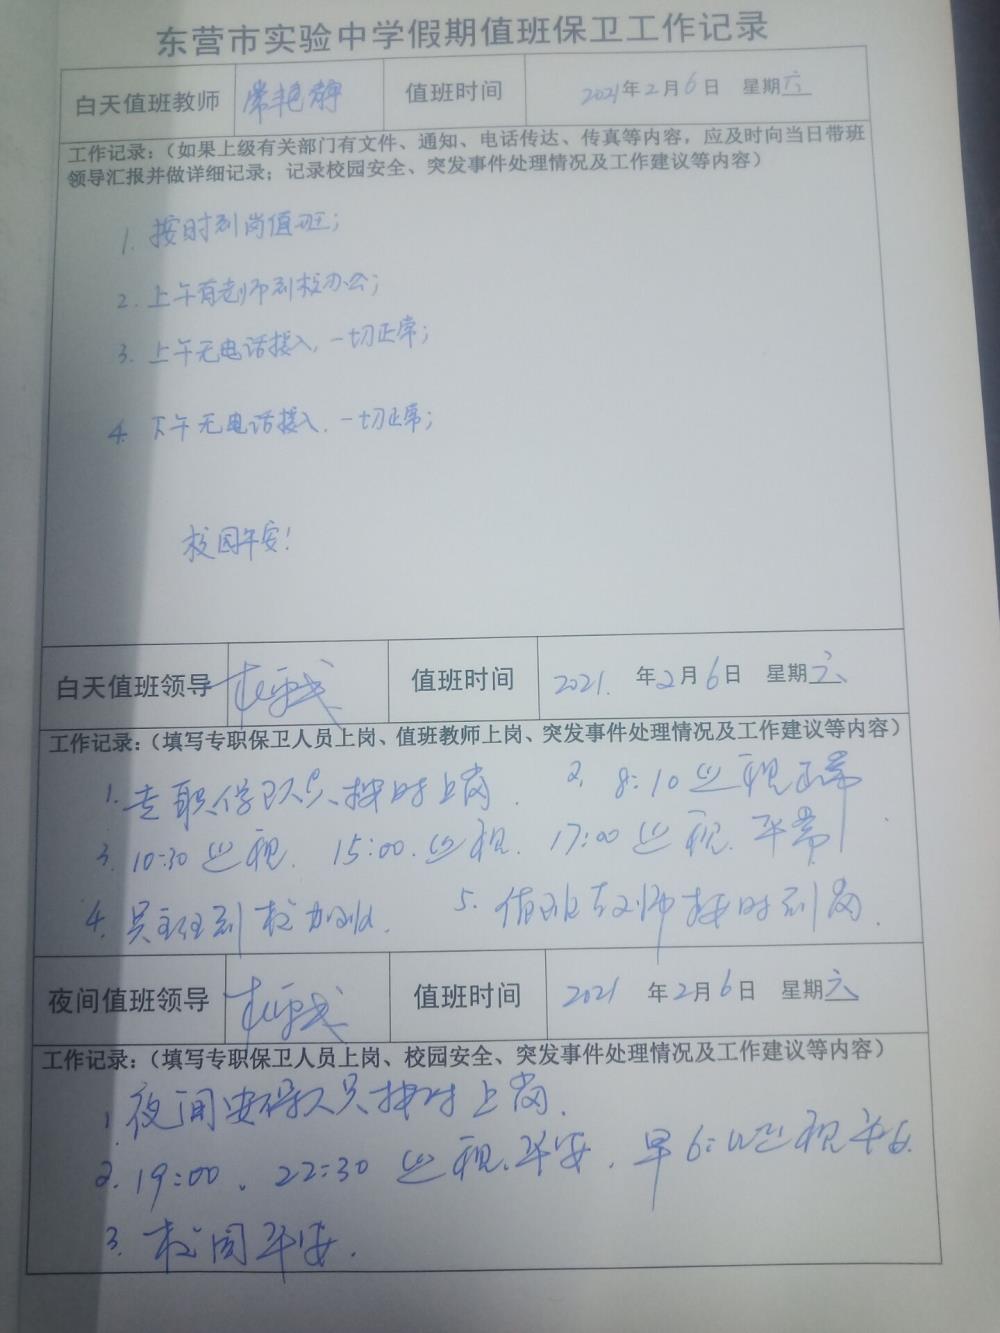 东营市实验中学假期值班保卫工作记录
白天值班教师 常艳静 值班时间 2021年2月6日 星期六
工作记录：（如果上级有关部门有文件、通知、电话传达、传真等内容，应及时向当日带班
领导汇报并做详细记录；记录校园安全、突发事件处理情况及工作建议等内容）
1. 按时到岗值班；
2. 上午有老师到校办公；
3. 上午无电话接入，一切正常；
4. 下午无电话接入，一切正常；
校园平安！
白天值班领导 值班时间 2021.年2月6日 星期六
工作记录：（填写专职保卫人员上岗、值班教师上岗、突发事件处理情况及工作建议等内容）
1. 专职保卫人员按时上岗. 2. 8:10巡视正常
3. 10:30巡视. 15:00.巡视. 17:00巡视.
4. 吴主任到校加班. 5. 值班教师按时到岗.
夜间值班领导 值班时间 2021年2月6日 星期六
工作记录：（填写专职保卫人员上岗、校园安全、突发事件处理情况及工作建议等内容）
1. 夜间安保人员按时上岗.
2. 19:00、22:30巡视.平安. 早 巡视
3. 校园平安.